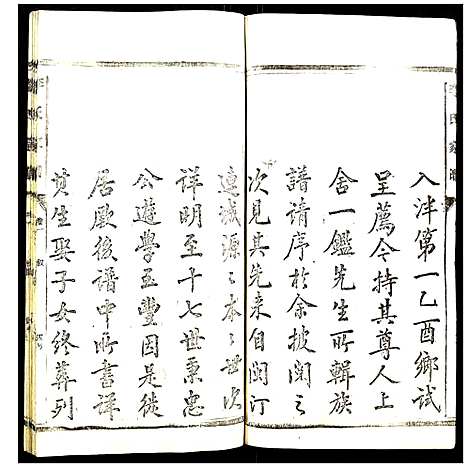 入泮第一乙酉鄉試
呈薦今持其尊人上
舍一鑑先生所輯族
譜請序於余披閱之
次見其先來自閩汀
連城源之本之世次
詳明至十七世秉忠
公遊學五豐因是徙
居厥後譜中所書詳
其生娶子女終葬列